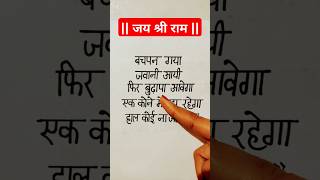 || जय श्री राम ||
बचपन गया
जवानी आयी
फिर बुढापा आवेगा
एक कोने रहेगा
हाल कोई ना